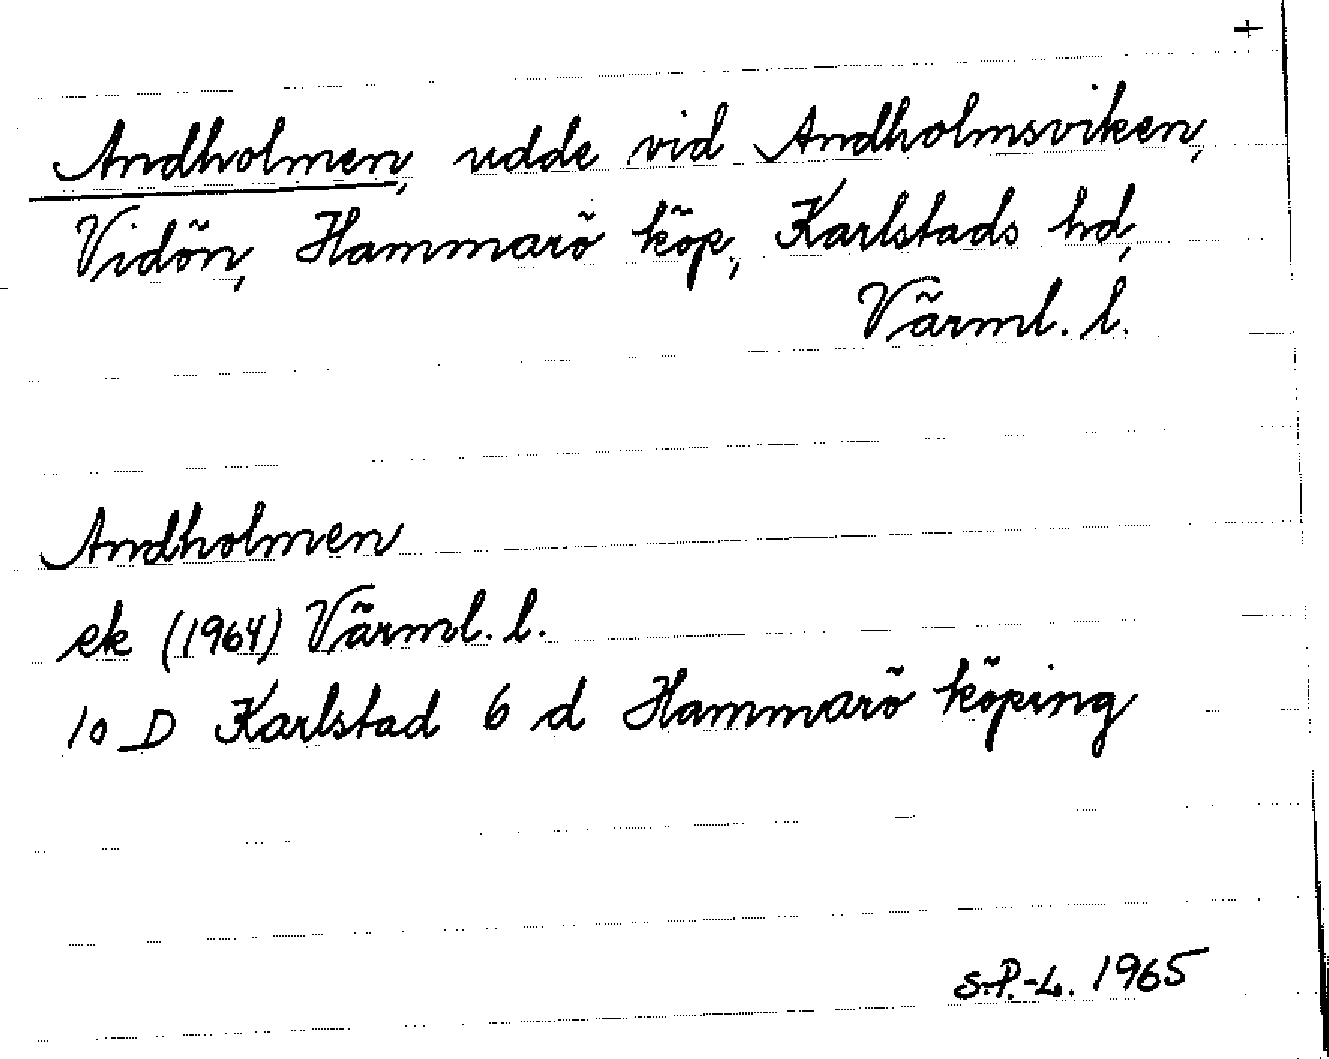 +
Andholmen, udde vid Andholmsviken,
Vidön, Hammarö köp., Karlstads hd,
Värml. l.
Andholmen
ek (1964) Värml. l.
10 D Karlstad 6 d Hammarö köping
S.P.-L. 1965